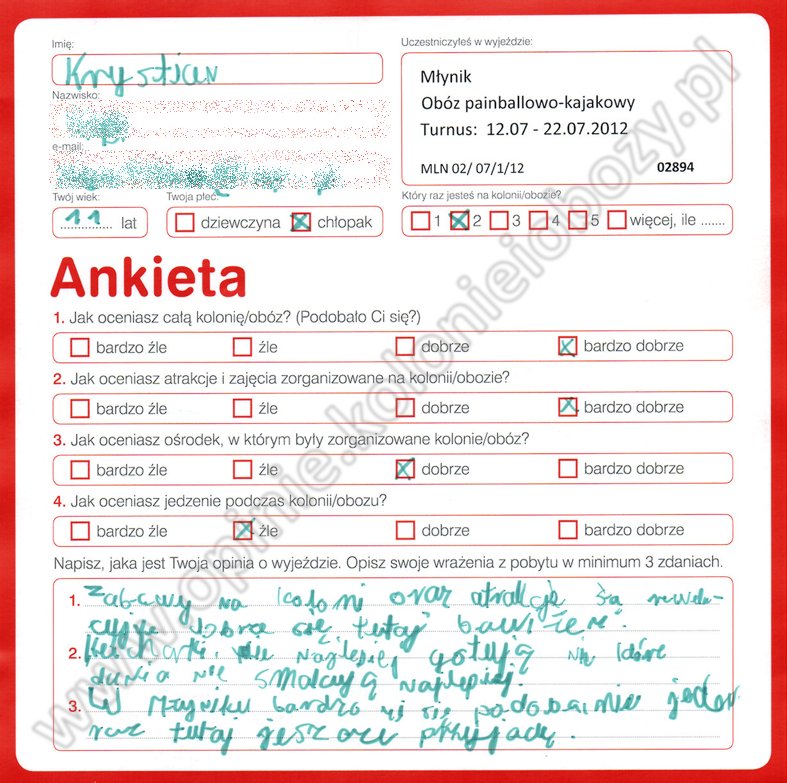 Imię:
Krystian
Nazwisko:
e-mail:
Twój wiek:
11 lat
Twoja płeć:
dziewczyna chłopak
Uczestniczyłeś w wyjeździe:
Młynik
Obóz painballowo-kajakowy
Turnus: 12.07 - 22.07.2012
MLN 02/ 07/1/12 02894
Który raz jesteś na kolonii/obozie?
1 2 3 4 5 więcej, ile .......
Ankieta
1. Jak oceniasz całą kolonię/obóz? (Podobało Ci się?)
bardzo źle źle dobrze bardzo dobrze
2. Jak oceniasz atrakcje i zajęcia zorganizowane na kolonii/obozie?
bardzo źle źle dobrze bardzo dobrze
3. Jak oceniasz ośrodek, w którym były zorganizowane kolonie/obóz?
bardzo źle źle dobrze bardzo dobrze
4. Jak oceniasz jedzenie podczas kolonii/obozu?
bardzo źle źle dobrze bardzo dobrze
Napisz, jaka jest Twoja opinia o wyjeździe. Opisz swoje wrażenia z pobytu w minimum 3 zdaniach.
1. Zabawy na koloni oraz atrakcje są
się tutaj
2. najlepiej gotują
dania nie smakują najlepiej.
3. W Młyniku bardzo mi się
raz tutaj jeszcze przyjadę.
www.opinie.kolonieiobozy.pl